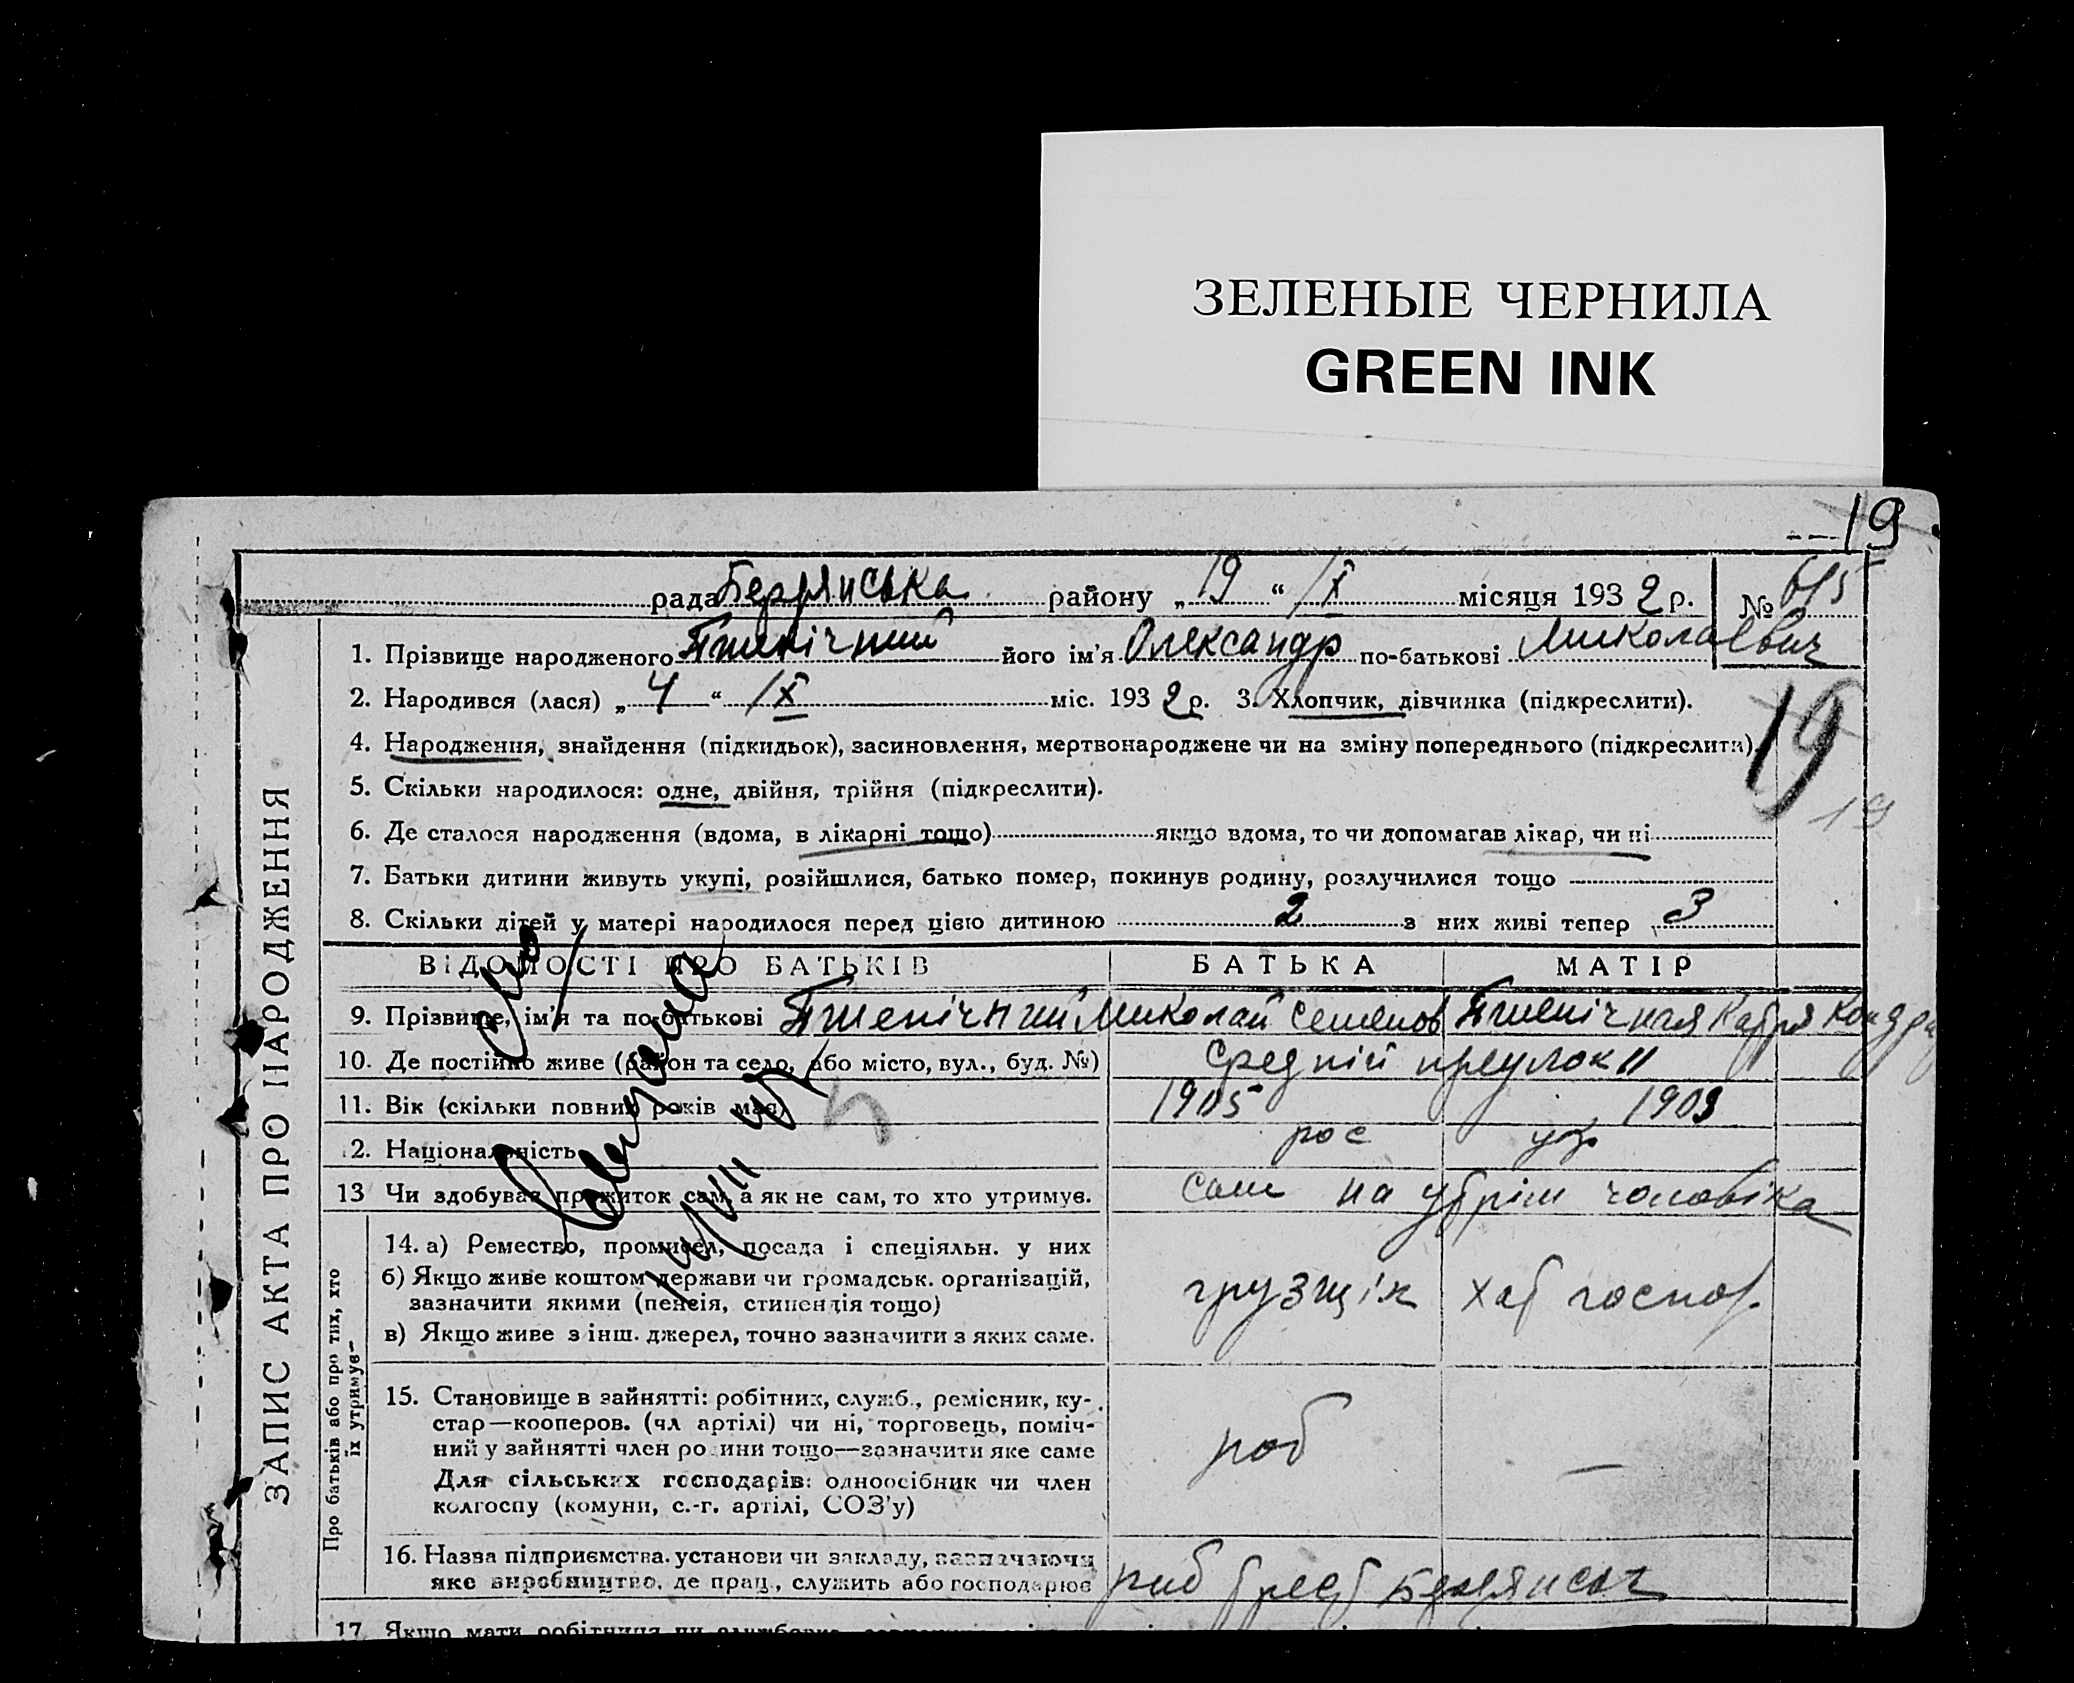 ЗЕЛЕНЫЕ ЧЕРНИЛА
GREEN INK
19
рада Бердянська району „19“ IX місяця 1932 р. № 615
1. Прізвище народженого Пшенічний його ім'я Олександр по-батькові Миколаевич
2. Народився (лася) „4“ IX міс. 1932 р. 3. Хлопчик, дівчинка (підкреслити).
19
4. Народження, знайдення (підкидьок), засиновлення, мертвонароджене чи на зміну попереднього (підкреслити).
5. Скільки народилося: одне, двійня, трійня (підкреслити).
19
6. Де сталося народження (вдома, в лікарні тощо) якщо вдома, то чи допомагав лікар, чи ні
7. Батьки дитини живуть укупі, розійшлися, батько помер, покинув родину, розлучилися тощо
8. Скільки дітей у матері народилося перед цією дитиною 2 з них живі тепер 3
ВІДОМОСТІ ПРО БАТЬКІВ БАТЬКА МАТІР
9. Прізвище, ім'я та по-батькові Пшенічний Миколай Семенов Пшенічная
10. Де постійно живе (район та село, або місто, вул., буд. №) Средній преулок 11
11. Вік (скільки повних років має) 1905 1909
2. Національність рос укр
13 Чи здобуває прожиток сам, а як не сам, то хто утримує. сам на утрім чоловіка
14. а) Ремество, промисел, посада і спеціяльн. у них
б) Якщо живе коштом держави чи громадськ. організацій,
зазначити якими (пенсія, стипендія тощо)
в) Якщо живе з інш. джерел, точно зазначити з яких саме.
грузщік хат господ.
15. Становище в зайнятті: робітник, служб., ремісник, ку-
стар—кооперов. (чл артілі) чи ні, торговець, поміч-
ний у зайнятті член родини тощо—зазначити яке саме
Для сільських господарів: одноосібник чи член
колгоспу (комуни, с.-г. артілі, СОЗ'у)
роб —
16. Назва підприємства, установи чи закладу, зазначаючи
яке виробництво, де прац., служить або господарює
17. Якщо мати робітниця чи службовка,
ЗАПИС АКТА ПРО НАРОДЖЕННЯ
Про батьків або про тих, хто
їх утримує—